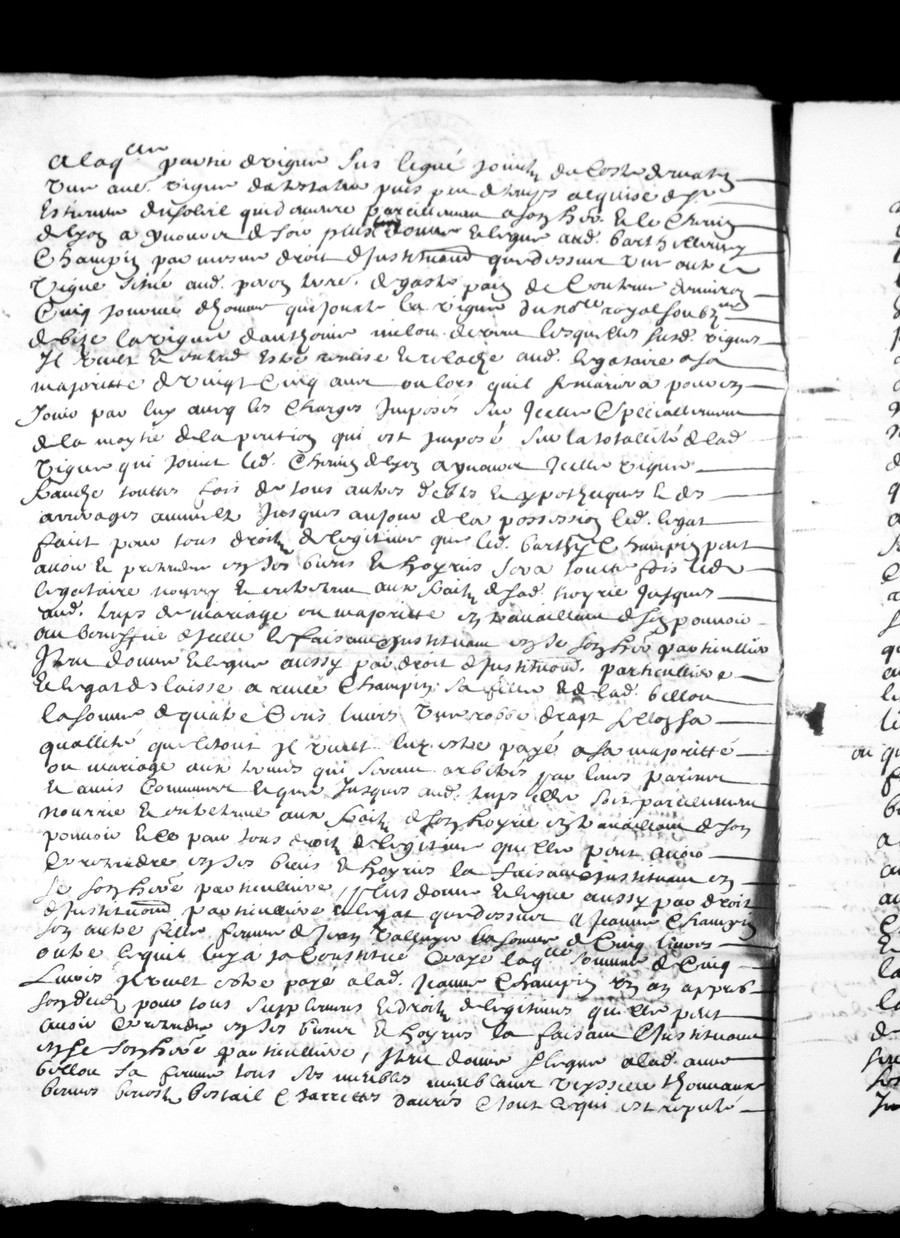 A laq^elle partie de vigne sus legué joint du costé de matin
une au^e vigne datestateur puis peu de temps acquise de
Estienne du soleil quil donne pareillement a son her. & le Chemin
de lyon a de soir plus donne & legue aud. Barthellemy
Champin par mesme droit d'Justituaon que dessus une autre
vigne sittuée aud. de gaste pais de Contenue denviron
Cinq journée d'homme qui jouxte la vigne du no^re royal
de bize la vigne d'anthoine milou de lesquelles susd. vignes
Il veult & entend estre remise & relachée aud. legataire a sa
majoritté de vingt Cinq ans ou lors quil se mariera pour en
Jouir par luy avec les Charges Jmposés sur Jcelles Speciallement
de la moytié de la pention qui est Jmposé sur la totallité de lad
vigne qui joint led. Chemin de lyon a Jcelle vigne
franche touttes fois de tous autres debtes & ypotheques & des
arrerages annuels Jusques au jour de la possession led. legat
fait pour tous droits de legitime que led. Barth^y Champin peut
avoir & pretendre en ses biens & hoyries sera toutte fois led
legataire nourry & entretenu aux fraits de sad. hoyrie Jusques
aud. temps de mariage ou majoritté en travaillant de son pouvoir
au beneffice d'jcelle le faisant & Justituant en se son her. particullier
Jtem donne & legue aussy par droit d'Justituaon particulliere
& legat delaisse a Champin sa fille & de lad. bellou
la somme de quatre Cents livres une robbe drapt selon sa
quallité que letout Jl veult luy estre payé a sa majoritté
ou mariage aux termes qui seront arbitrés par leurs parents
& amis Communs & que Jusques aud. temps elle soit pareillement
nourrie & entretenue aux fraits de son hoyrie en travaillant de son
pouvoir & ce pour tous droits de legitime quelle peut avoir
& pretendre en ses biens & hoyries la faisant & Justituant en
se son her^e particulliere, plus donne & legue aussy par droit
d'Justituaon particulliere & legat que dessus a Jeanne Champin
son autre fille femme de Jean la somme de Cinq livres
outre ce quil luy a ja Constitué & payé laq^elle somme de Cinq
Livres Jl veult estre payé a lad. Jeanne Champin un an apprès
son decès pour tous supplements & droits de legitimes quelle peut
avoir & pretendre en ses biens & hoyries la faisant & Justituant
en se son her^e particulliere, Jtem donne & legue a lad. anne
bellou sa femme tous ses meubles meublants vesselle thonneaux
bennes benosts bestail Charrettes danrés & tout ce qui est reputé